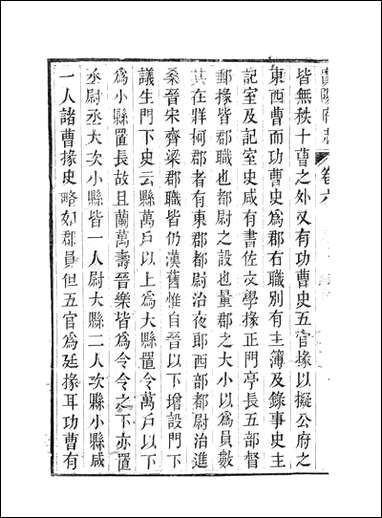 貴陽府志 卷六
皆無秩十曹之外又有功曹史五官掾以擬公府之
東西曹而功曹史為郡右職別有主簿及錄事史主
記室及記室史咸有書佐文學掾正門亭長五部督
郵掾皆郡職也都尉之設也量郡之大小以為員數
其在牂柯郡者有東郡都尉治夜郎西部都尉治進
桑晉宋齊梁郡職皆仍漢舊惟自晉以下增設門下
議生門下史云縣萬戶以上為大縣置令萬戶以下
為小縣置長故且蘭萬壽晉樂皆為令令之下亦置
丞尉丞大次小縣皆一人尉大縣二人次縣小縣咸
一人諸曹掾史略如郡員但五官為廷掾耳功曹有